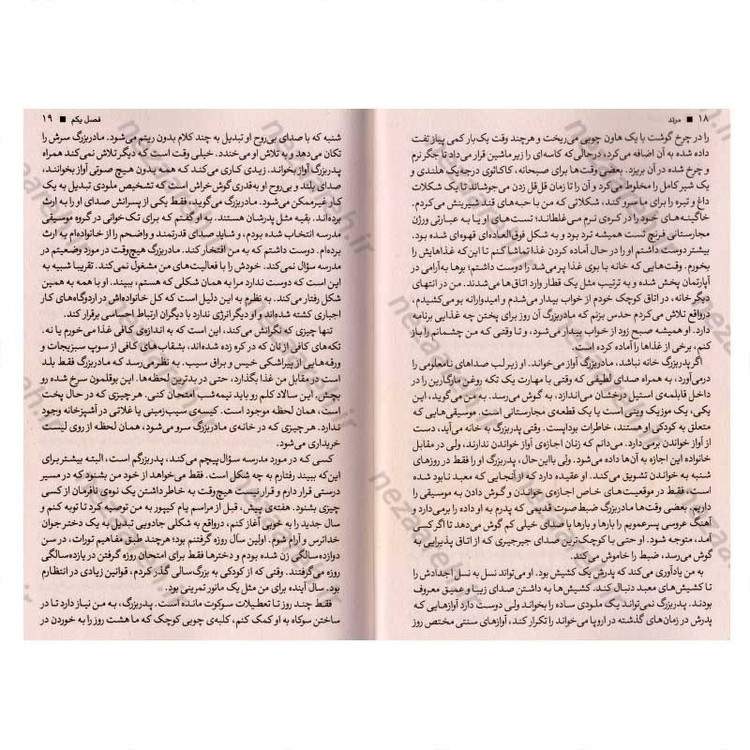 ۱۸ ■ مرتد
را در چرخ گوشت با یک هاون چوبی می‌ریخت و هرچند وقت یک‌بار کمی پیاز تفت
داده شده به آن اضافه می‌کرد، درحالی‌که کاسه‌ای را زیر ماشین قرار می‌داد تا جگر نرم
و چرخ شده در آن بریزد. بعضی وقت‌ها برای صبحانه، کاکائوی درجه‌یک هلندی و
یک شیر کامل را مخلوط می‌کرد و آن را تا زمان قل‌قل زدن می‌جوشاند تا یک شکلات
داغ و تیره را برای ما سرو کند، شکلاتی که من با حبه‌های قند شیرینش می‌کردم.
خاگینه‌های خود را در کره‌ی نرم می‌غلطاند؛ تست‌های او یا به عبارتی ورژن
مجارستانی فرنچ تست همیشه ترد بود و به شکل فوق‌العاده‌ای قهوه‌ای شده بود.
بیشتر دوست داشتم او را در حال آماده کردن غذا تماشا کنم تا این‌که غذاهایش را
بخورم. وقت‌هایی که خانه با بوی غذا پر می‌شد را دوست داشتم؛ بوها به‌آرامی در
آپارتمان پخش شده و به ترتیب مثل یک قطار وارد اتاق‌ها می‌شدند. من در انتهای
دیگر خانه، در اتاق کوچک خودم از خواب بیدار می‌شدم و امیدوارانه بو می‌کشیدم،
درواقع تلاش می‌کردم حدس بزنم که مادربزرگ آن روز برای پختن چه غذایی برنامه
دارد. او همیشه صبح زود از خواب بیدار می‌شود، و تا وقتی که من چشمانم را باز
کنم، برخی از غذاها را آماده کرده است.
اگر پدربزرگ خانه نباشد، مادربزرگ آواز می‌خواند. او زیر لب صداهای نامعلومی را
درمی‌آورد، به همراه صدای لطیفی که وقتی با مهارت یک تکه روغن مارگارین را در
داخل قابلمه‌ی استیل درخشان می‌اندازد، به گوش می‌رسد. به من می‌گوید، این
یکی، یک موزیک وینی است یا یک قطعه‌ی مجارستانی است. موسیقی‌هایی که
متعلق به کودکی او هستند، خاطرات بوداپست. وقتی پدربزرگ به خانه می‌آید، دست
از آواز خواندن برمی‌دارد. می‌دانم که زنان اجازه‌ی آواز خواندن ندارند، ولی در مقابل
خانواده این اجازه به آن‌ها داده می‌شود. ولی بااین‌حال، پدربزرگ او را فقط در روزهای
شنبه به خواندن تشویق می‌کند. او عقیده دارد که از آنجایی که معبد نابود شده
است، فقط در موقعیت‌های خاص اجازه‌ی خواندن و گوش دادن به موسیقی را
داریم. بعضی وقت‌ها مادربزرگ ضبط‌صوت قدیمی که پدرم به او داده را برمی‌دارد و
آهنگ عروسی پسرعمویم را بارها و بارها با صدای خیلی کم گوش می‌دهد تا اگر کسی
آمد، متوجه شود. او حتی با کوچک‌ترین صدای جیرجیری که از اتاق پذیرایی به
گوش می‌رسد، ضبط را خاموش می‌کند.
به من یادآوری می‌کند که پدرش یک کشیش بود. او می‌تواند نسل به نسل اجدادش را
تا کشیش‌های معبد دنبال کند. کشیش‌ها به داشتن صدای زیبا و عمیق معروف
بودند. پدربزرگ نمی‌تواند یک ملودی ساده را بخواند ولی دوست دارد آوازهایی که
پدرش در زمان‌های گذشته در اروپا می‌خواند را تکرار کند، آوازهای سنتی مختص روز
فصل یکم ■ ۱۹
شنبه که با صدای بی‌روح او تبدیل به چند کلام بدون ریتم می‌شود. مادربزرگ سرش را
تکان می‌دهد و به تلاش او می‌خندد. خیلی وقت است که دیگر تلاش نمی‌کند همراه
پدربزرگ آواز بخواند. زیدی کاری می‌کند که همه بدون هیچ صوتی آواز بخوانند،
صدای بلند و بی‌روح او به‌قدری گوش‌خراش است که تشخیص ملودی تبدیل به یک
کار غیرممکن می‌شود. مادربزرگ می‌گوید، فقط یکی از پسرانش صدای او را به ارث
برده‌اند. بقیه مثل پدرشان هستند. به او گفتم که برای تک‌خوانی در گروه موسیقی
مدرسه انتخاب شده بودم، و شاید صدای قدرتمند و واضحم را از خانواده‌ام به ارث
برده‌ام. دوست داشتم که به من افتخار کند. مادربزرگ هیچ‌وقت در مورد وضعیتم در
مدرسه سؤال نمی‌کند. خودش را با فعالیت‌های من مشغول نمی‌کند. تقریبا شبیه به
این است که دوست ندارد مرا به همان شکلی که هستم، ببیند. او با همه به همین
شکل رفتار می‌کند. به نظرم به این دلیل است که کل خانواده‌اش در اردوگاه‌های کار
اجباری کشته شده‌اند و او دیگر انرژی ندارد با دیگران ارتباط احساسی برقرار کند.
تنها چیزی که نگرانش می‌کند، این است که به اندازه‌ی کافی غذا می‌خورم یا نه.
تکه‌های کافی از نان که در کره زده شده‌اند، بشقاب‌های کافی از سوپ سبزیجات و
ورقه‌هایی از پیراشکی خیس و براق سیب. به نظر می‌رسد که مادربزرگ فقط بلد
است در مقابل من غذا بگذارد، حتی در بدترین لحظه‌ها. این بوقلمون سرخ شده رو
بچش. این سالاد کلم رو باید نیمه‌شب امتحان کنی. هر چیزی که در حال پخت
است، همان لحظه موجود است. کیسه‌ی سیب‌زمینی یا غلاتی در آشپزخانه وجود
ندارد. هر چیزی که در خانه‌ی مادربزرگ سرو می‌شود، همان لحظه از روی لیست
خریداری می‌شود.
کسی که در مورد مدرسه سؤال‌پیچم می‌کند، پدربزرگم است، البته بیشتر برای
این‌که ببیند رفتارم به چه شکل است. فقط می‌خواهد از خودم من بشنود که در مسیر
درستی قرار دارم و قرار نیست هیچ‌وقت به خاطر داشتن یک نوه‌ی نافرمان از کسی
چیزی بشنود. هفته‌ی پیش، قبل از مراسم یام کیپور به من توصیه کرد تا توبه کنم و
سال جدید را به خوبی آغاز کنم، درواقع به شکلی جادویی تبدیل به یک دختر جوان
خداترس و آرام شوم. اولین سال روزه گرفتنم بود؛ هرچند طبق مفاهیم تورات، در سن
دوازده‌سالگی زن شده بودم و دخترها فقط برای امتحان روزه گرفتن در یازده‌سالگی
روزه می‌گرفتند. وقتی که از کودکی به بزرگ‌سالی گذر کردم، قوانین زیادی در انتظارم
بود. سال آینده برای من مثل یک مانور تمرینی بود.
فقط چند روز تا تعطیلات سوکوت مانده است. پدربزرگ، به من نیاز دارد تا در
ساختن سوکاه به او کمک کنم، کلبه‌ی چوبی کوچک که ما هشت روز را به خوردن در